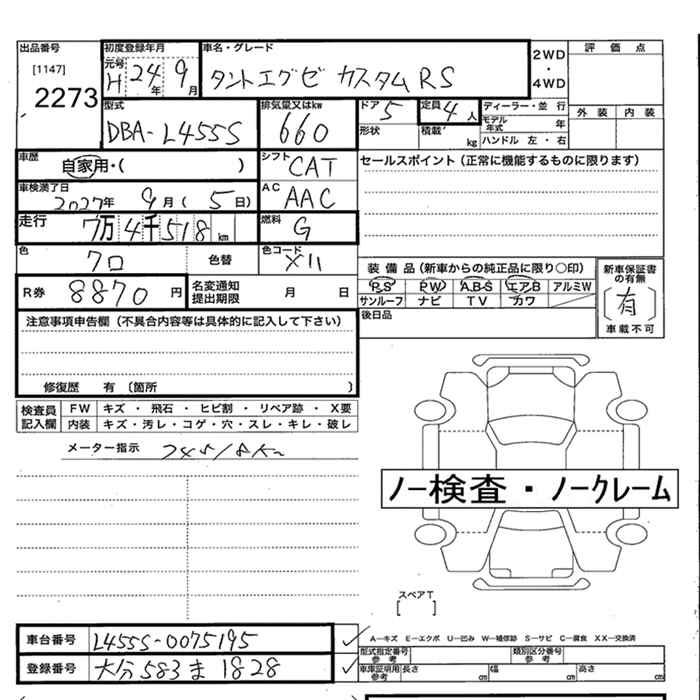 出品番号 初度登録年月 車名・グレード 2WD・4WD 評価点
[1147] 元号 H 24年 9月 タントエグゼ カスタムRS
2273
型式 排気量又はkw ドア 5 定員 4人 ディーラー・並行 外装 内装
DBA-L455S 660 形状 積載 kg モデル年式 年
ハンドル 左・右
車歴 自家用・( ) シフト CAT セールスポイント(正常に機能するものに限ります)
車検満了日 2027年 9月 ( 5日) AC AAC
走行 7万4千518km 燃料 G
色 クロ 色替 色コード X11 装備品(新車からの純正品に限り○印) 新車保証書の有無
R券 8870円 名変通知提出期限 月 日 PS PW ABS エアB アルミW (有)
サンルーフ ナビ TV カワ 車載不可
注意事項申告欄(不具合内容等は具体的に記入して下さい) 後日品
修復歴 有 〔箇所 〕
検査員記入欄 FW キズ・飛石・ヒビ割・リペア跡・X要
内装 キズ・汚レ・コゲ・穴・スレ・キレ・破レ
メーター指示 74518Km
ノー検査・ノークレーム
スペアT
[ ]
車台番号 L455S-0075195 A-キズ E-エクボ U-凹み W-補修跡 S-サビ C-腐食 XX-交換済
型式指定番号 参考 類別区分番号 参考
登録番号 大分583ま1828 車庫証明用 参考 長さ cm 幅 cm 高さ cm